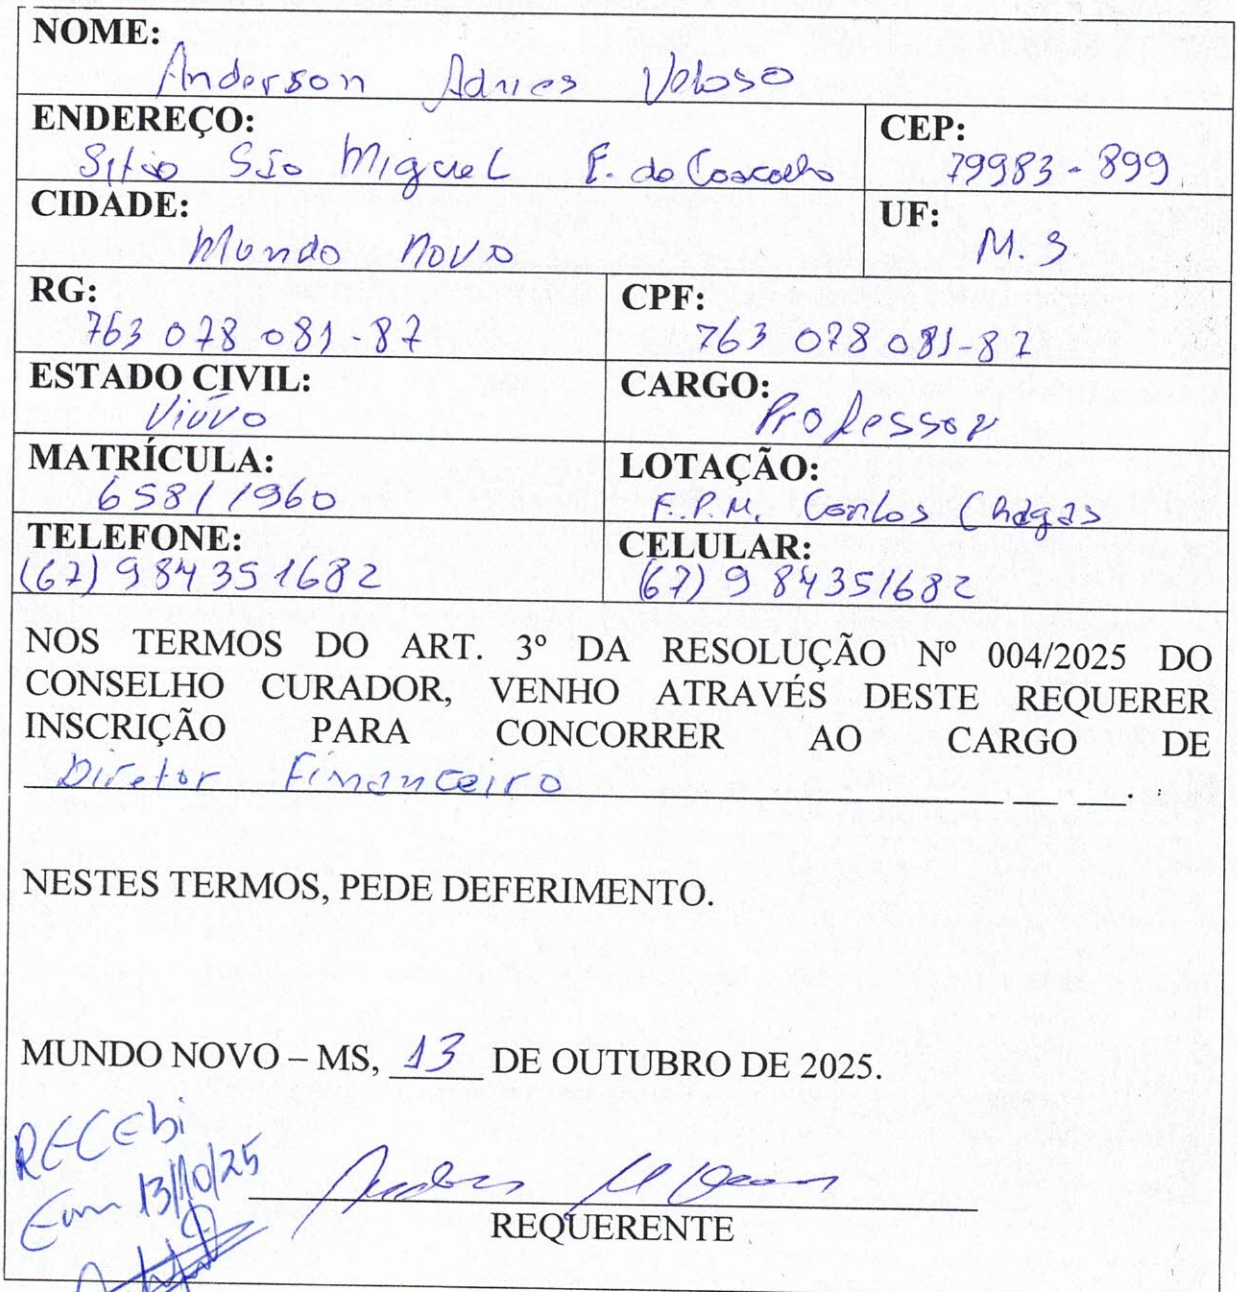 NOME:
Anderson Adries Veloso
ENDEREÇO:
Sitio São Miguel E. do Cascalho
CEP:
79983-899
CIDADE:
Mundo Novo
UF:
M.S
RG:
763 078 081-87
CPF:
763 078 081-87
ESTADO CIVIL:
Viúvo
CARGO:
Professor
MATRÍCULA:
658/1960
LOTAÇÃO:
E.P.M. Carlos Chagas
TELEFONE:
(67) 984351682
CELULAR:
(67) 9 84351682
NOS TERMOS DO ART. 3º DA RESOLUÇÃO Nº 004/2025 DO
CONSELHO CURADOR, VENHO ATRAVÉS DESTE REQUERER
INSCRIÇÃO PARA CONCORRER AO CARGO DE
Diretor Financeiro.
NESTES TERMOS, PEDE DEFERIMENTO.
MUNDO NOVO – MS, 13 DE OUTUBRO DE 2025.
RECEbi
Em 13/10/25
REQUERENTE